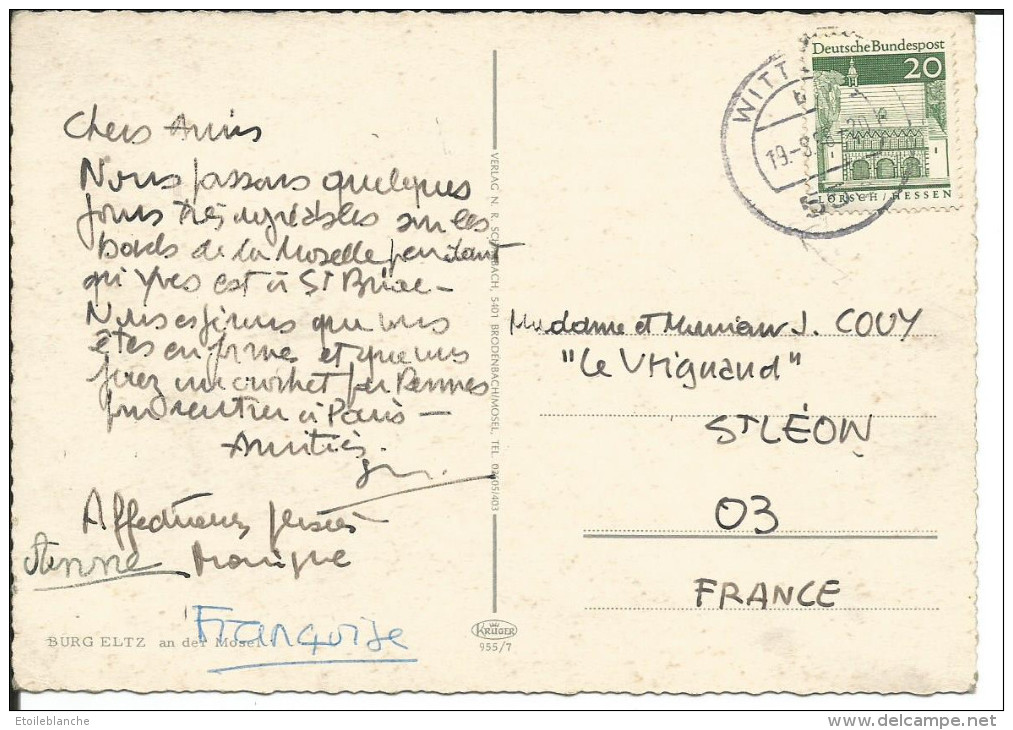 Chers Amis
Nous passons quelques
jours très agréables sur les
Bords de la Moselle pendant
qu'Yves est à St Briac -
Nous espérons que vous
êtes en forme et que vous
ferez un crochet par Rennes
pour rentrer à Paris -
Amitiés.
Affectueuses pensées
Monique
Françoise
BURG ELTZ an der Mosel
VERLAG N. R. BACH, 5401 BRODENBACH/MOSEL, TEL. 02605/403
KRÜGER
955/7
Deutsche Bundespost
20
LORSCH / HESSEN
WITT
19.-8.
55
Madame et Monsieur J. COUY
"Le Vrignaud"
ST LÉON
03
FRANCE
Etoileblanche
delcampe.net